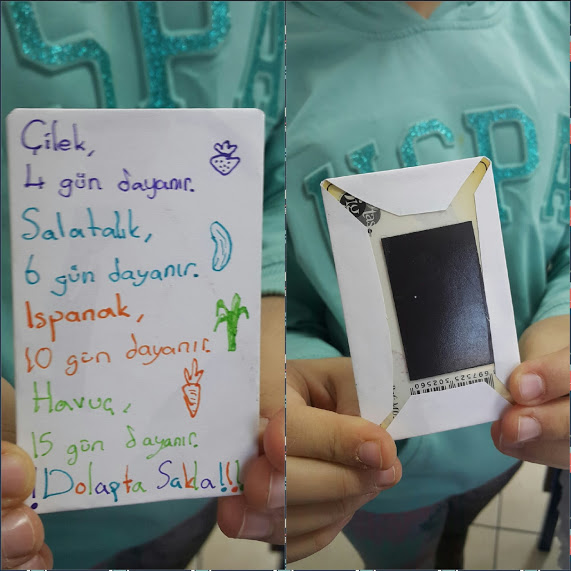 Çilek,
4 gün dayanır.
Salatalık,
6 gün dayanır.
Ispanak,
10 gün dayanır.
Havuç,
15 gün dayanır.
!Dolapta Sakla!!!